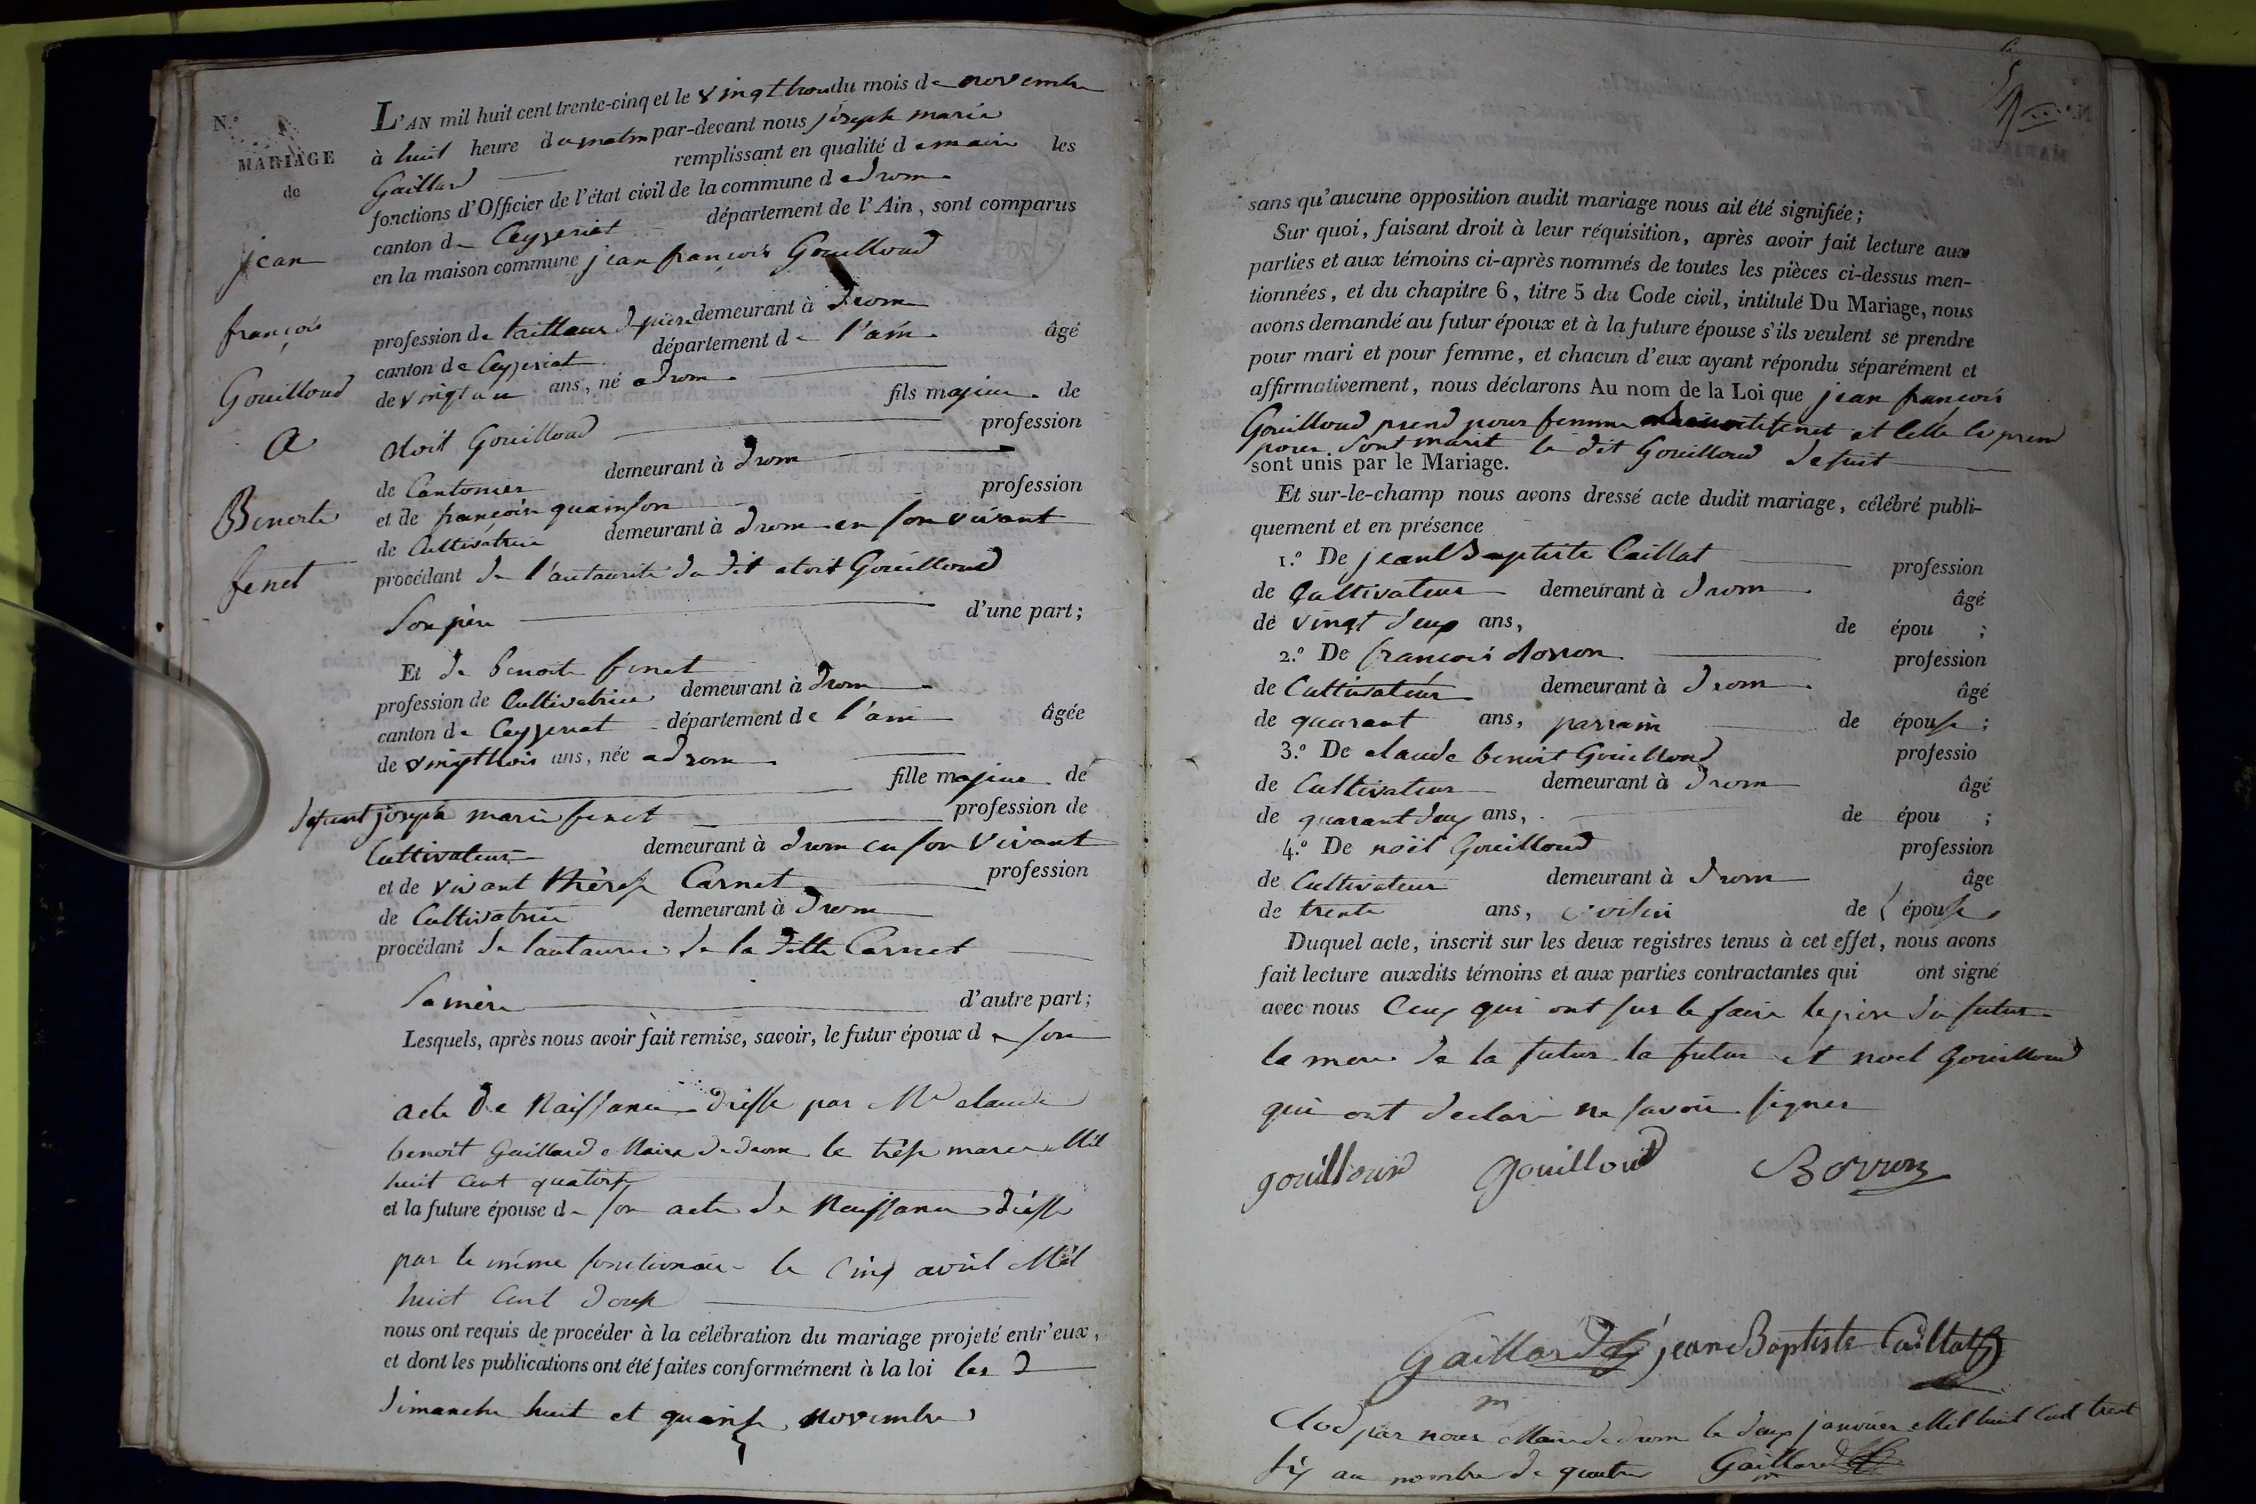 N.°
MARIAGE
de
jean
françois
Gouilloud
a
Benoite
fenet
L'AN mil huit cent trente-cinq et le vingt trois du mois de novembre
à huit heure du matin par-devant nous joseph marie
Gaillard remplissant en qualité de maire les
fonctions d'Officier de l'état civil de la commune de drom
canton de Ceyzeriat département de l'Ain, sont comparus
en la maison commune jean françois Gouilloud
profession de tailleur d pière demeurant à drom
canton de Ceyzeriat département de l'ain âgé
de vingt un ans, né a drom
fils majeur de
Gouilloud profession
de Cantonier demeurant à drom
et de françoise quainson profession
de Cultivatrice demeurant à drom en son vivant
procédant de l'autaurité du dit Gouilloud
Son père d'une part;
Et de benoite fenet
profession de Cultivatrice demeurant à drom
canton de Ceyzeriat département de l'ain âgée
de vingt trois ans, née a drom
fille majeure de
defunt joseph marie fenet profession de
Cultivateur demeurant à drom en son vivant
et de vivant thérese Carnet profession
de Cultivatrice demeurant à drom
procédant de lautaurité de la ditte Carnet
Sa mère d'autre part;
Lesquels, après nous avoir fait remise, savoir, le futur époux de son
acte de Naissance dresse par Mr claude
benoit Gaillard Maire de drom le treise mars Mil
huit cent quatorse
et la future épouse de son acte de Naissance dresse
par le même fonctionaire le cinq avril Mil
huit cent douse
nous ont requis de procéder à la célébration du mariage projeté entr'eux,
et dont les publications ont été faites conformément à la loi les d
dimanche huit et quainse novembre
sans qu'aucune opposition audit mariage nous ait été signifiée;
Sur quoi, faisant droit à leur réquisition, après avoir fait lecture aux
parties et aux témoins ci-après nommés de toutes les pièces ci-dessus men-
tionnées, et du chapitre 6, titre 5 du Code civil, intitulé Du Mariage, nous
avons demandé au futur époux et à la future épouse s'ils veulent se prendre
pour mari et pour femme, et chacun d'eux ayant répondu séparément et
affirmativement, nous déclarons Au nom de la Loi que jean françois
Gouilloud prend pour femme benoite fenet et celle ci prend
pour sont marit le dit Gouilloud
sont unis par le Mariage.
Et sur-le-champ nous avons dressé acte dudit mariage, célébré publi-
quement et en présence
1.° De jean Baptiste Caillat profession
de Cultivateur demeurant à drom âgé
de vingt deux ans, de épou ;
2.° De françois Borron profession
de Cultivateur demeurant à drom âgé
de quarant ans, parrain de épouse ;
3.° De claude benoit Gouilloud professio
de Cultivateur demeurant à drom âgé
de quarant deux ans, de épou ;
4.° De noël Gouilloud profession
de Cultivateur demeurant à drom âge
de trente ans, voisin de épouse
Duquel acte, inscrit sur les deux registres tenus à cet effet, nous avons
fait lecture auxdits témoins et aux parties contractantes qui ont signé
avec nous Ceux qui ont sus le faire le père du futur
la mere de la futur la futur et noel Gouilloud
qui ont declaré ne savoir signer
gouilloud Gouilloud Borron
Gaillard jean Baptiste Caillat
m
Clod par nous Maire de drom le deux janvier Mil huit cent trent
six au nombre de quatre Gaillard
m